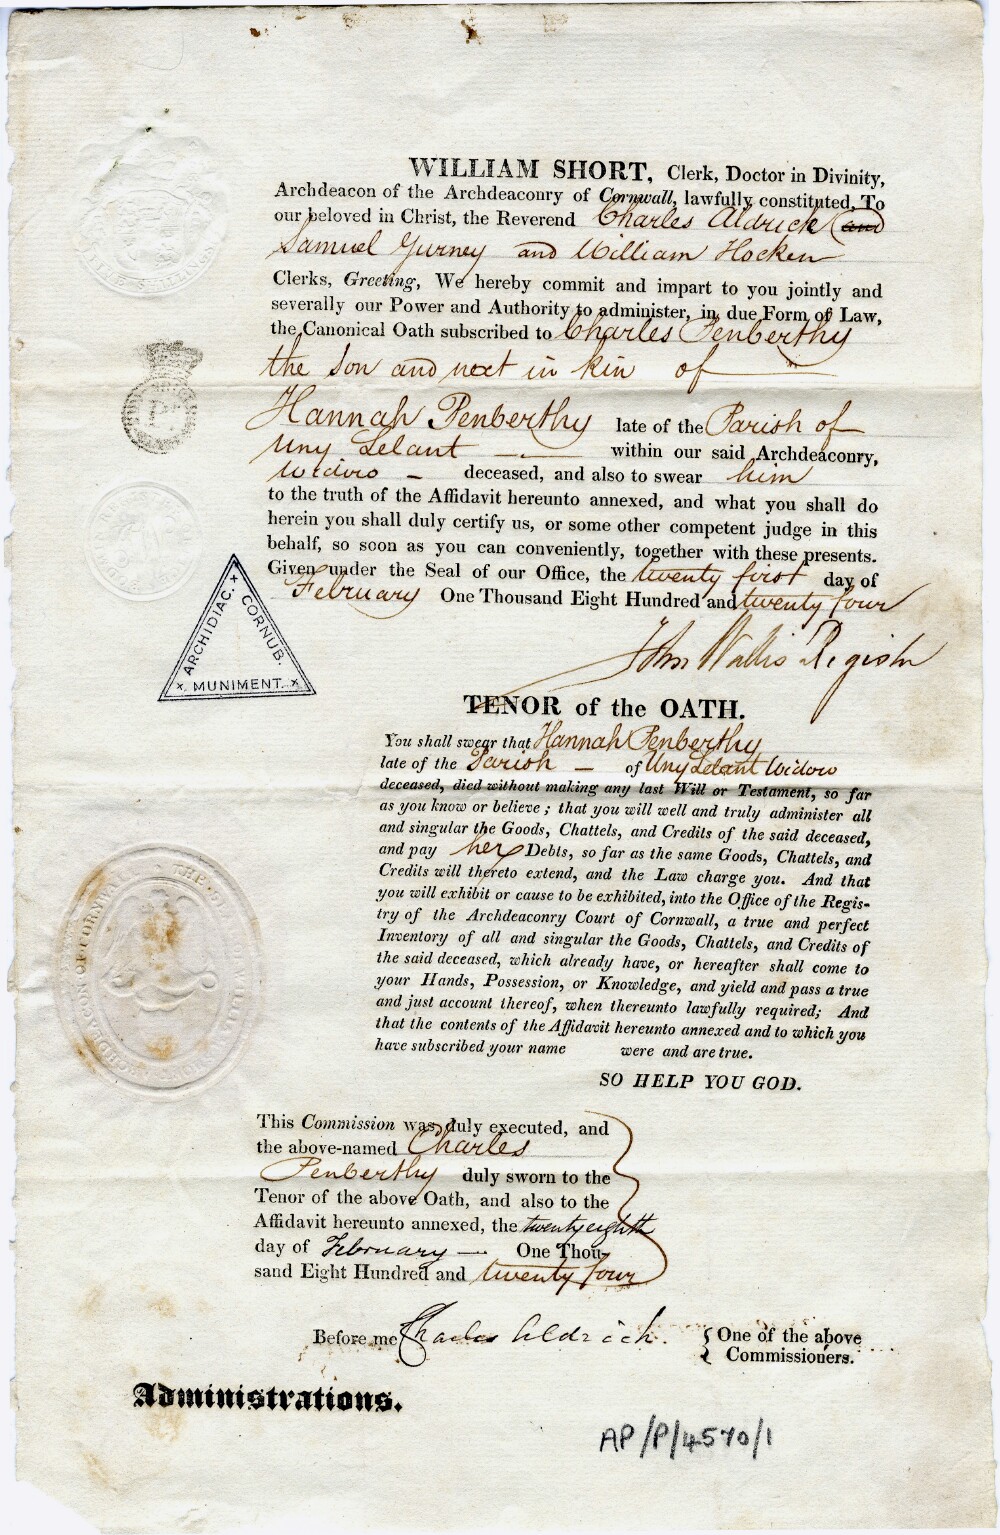 WILLIAM SHORT, Clerk, Doctor in Divinity,
Archdeacon of the Archdeaconry of Cornwall, lawfully constituted, To
our beloved in Christ, the Reverend Charles Aldrick (and
Samuel Gurney and William Hocken
Clerks, Greeting, We hereby commit and impart to you jointly and
severally our Power and Authority to administer, in due Form of Law,
the Canonical Oath subscribed to Charles Penberthy
the Son and next in kin of
Hannah Penberthy late of the Parish of
Uny Lelant — within our said Archdeaconry,
Widow – deceased, and also to swear him
to the truth of the Affidavit hereunto annexed, and what you shall do
herein you shall duly certify us, or some other competent judge in this
behalf, so soon as you can conveniently, together with these presents.
Given under the Seal of our Office, the twenty first day of
February One Thousand Eight Hundred and twenty four
ARCHIDIAC.
CORNUB.
MUNIMENT.
John Wallis Register
TENOR of the OATH.
You shall swear that Hannah Penberthy
late of the Parish – of Uny Lelant Widow
deceased, died without making any last Will or Testament, so far
as you know or believe; that you will well and truly administer all
and singular the Goods, Chattels, and Credits of the said deceased,
and pay her Debts, so far as the same Goods, Chattels, and
Credits will thereto extend, and the Law charge you. And that
you will exhibit or cause to be exhibited, into the Office of the Regis-
try of the Archdeaconry Court of Cornwall, a true and perfect
Inventory of all and singular the Goods, Chattels, and Credits of
the said deceased, which already have, or hereafter shall come to
your Hands, Possession, or Knowledge, and yield and pass a true
and just account thereof, when thereunto lawfully required; And
that the contents of the Affidavit hereunto annexed and to which you
have subscribed your name were and are true.
SO HELP YOU GOD.
This Commission was duly executed, and
the above-named Charles
Penberthy duly sworn to the
Tenor of the above Oath, and also to the
Affidavit hereunto annexed, the twenty eighth
day of February — One Thou-
sand Eight Hundred and twenty four
Before me Charles Aldrich. { One of the above
Commissioners.
Administrations.
AP/P/4570/1